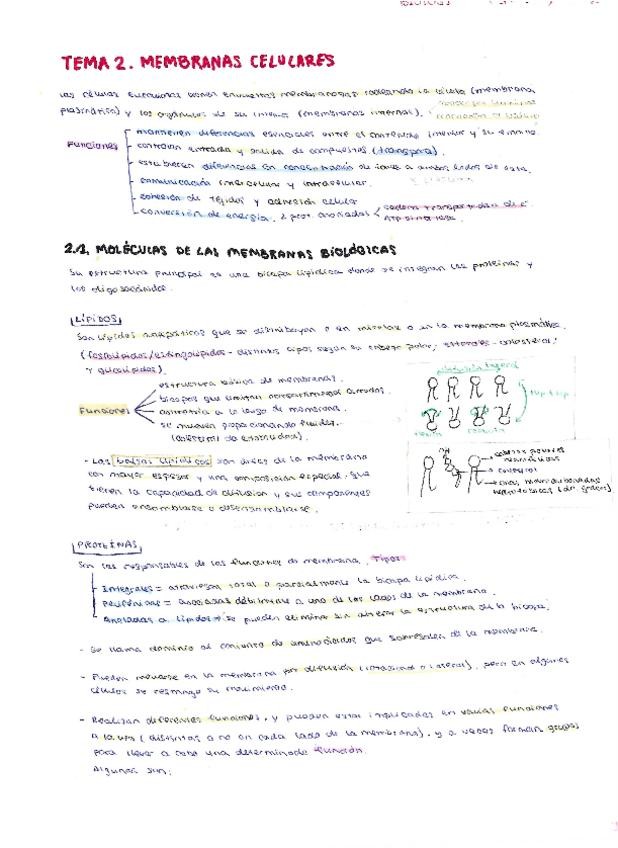 TEMA 2. MEMBRANAS CELULARES
Las células eucariotas tienen envueltas membranosas rodeando la célula (membrana
plasmática) y los orgánulos de su interior (membranas internas).
Funciones
mantienen diferencias esenciales entre el contenido interior y su entorno.
controlan entrada y salida de compuestos (transporte).
establecen diferencias en concentración de iones a ambos lados de esta.
comunicación intercelular y intracelular.
cohesión de tejidos y adhesión celular
conversión de energía. prot. asociadas
cadena transportadora de e-
ATP sintetasa.
2.1. MOLÉCULAS DE LAS MEMBRANAS BIOLÓGICAS
Su estructura principal es una bicapa lipídica donde se integran las proteínas y
los oligosacáridos.
LÍPIDOS
Son lípidos antipáticos que se distribuyen o en micelas o en la membrana plasmática.
(fosfolípidos/esfingolípidos - distintos tipos según su cabeza polar; esteroles - colesterol;
y glucolípidos).
Funciones
estructura básica de membranas.
bicapas que limitan compartimentos cerrados.
asimetría a lo largo de membrana.
se mueven proporcionando fluidez.
(colesterol da estabilidad).
difusión lateral
flip-flop
flexión
rotación
OH
cabezas polares
colesterol
- Las balsas lipídicas son áreas de la membrana
con mayor espesor y una composición especial, que
tienen la capacidad de difusión y sus componentes
pueden ensamblarse o desensamblarse.
PROTEÍNAS
Son las responsables de las funciones de membrana. Tipos:
Integrales = atraviesan total o parcialmente la bicapa lipídica.
Periféricas = asociadas débilmente a uno de los lados de la membrana.
Ancladas a lípidos = se pueden eliminar sin alterar la estructura de la bicapa.
- Se llama dominio al conjunto de aminoácidos que sobresalen de la membrana.
- Pueden moverse en la membrana por difusión (rotacional o lateral), pero en algunas
células se restringe su movimiento.
- Realizan diferentes funciones, y pueden estar implicadas en varias funciones
a la vez (distintas o no en cada lado de la membrana), y a veces forman grupos
para llevar a cabo una determinada función.
Algunas son: